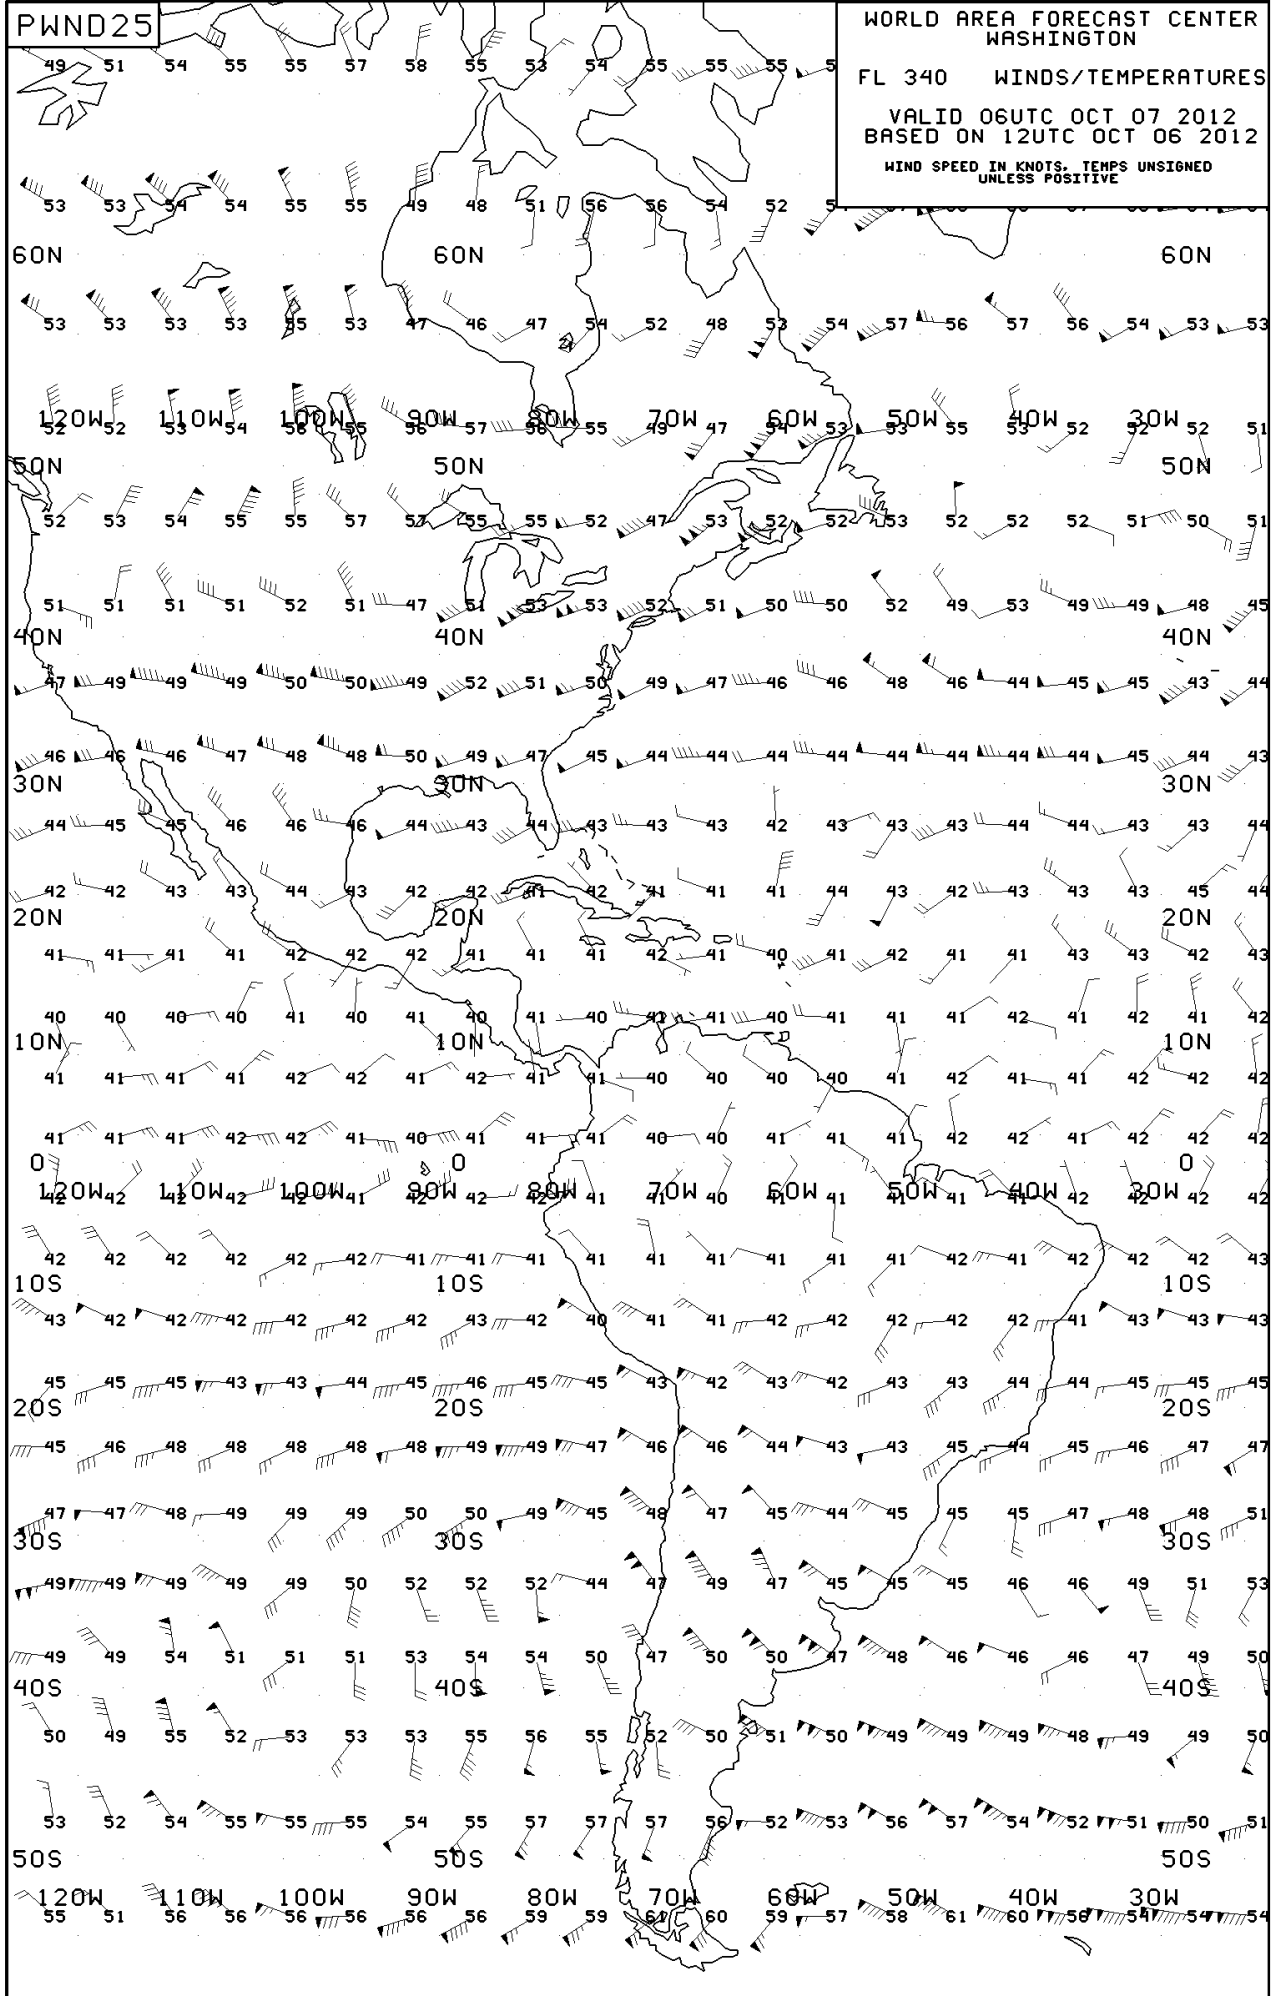 PWND25
WORLD AREA FORECAST CENTER
WASHINGTON
FL 340 WINDS/TEMPERATURES
VALID 06UTC OCT 07 2012
BASED ON 12UTC OCT 06 2012
WIND SPEED IN KNOTS, TEMPS UNSIGNED
UNLESS POSITIVE
49 51 54 55 55 57 58 55 53 54 55 55 55
53 53 54 54 55 55 49 48 51 56 56 54 52
60N 60N 60N
53 53 53 53 55 53 47 46 47 54 52 48 53 54 57 56 57 56 54 53 53
120W 110W 100W 90W 80W 70W 60W 50W 40W 30W
52 52 53 54 56 55 56 57 56 55 49 47 54 53 53 55 53 52 52 52 51
50N 50N 50N
52 53 54 55 55 57 57 55 55 52 47 53 52 52 53 52 52 52 51 50 51
51 51 51 51 52 51 47 51 53 53 52 51 50 50 52 49 53 49 49 48 45
40N 40N 40N
47 49 49 49 50 50 49 52 51 50 49 47 46 46 48 46 44 45 45 43 44
46 46 46 47 48 48 50 49 47 45 44 44 44 44 44 44 44 44 45 44 43
30N 30N 30N
44 45 45 46 46 46 44 43 44 43 43 43 42 43 43 43 44 44 43 43 44
42 42 43 43 44 43 42 42 41 42 41 41 41 44 43 42 43 43 43 45 44
20N 20N 20N
41 41 41 41 42 42 42 41 41 41 42 41 40 41 42 41 41 43 43 42 43
40 40 40 40 41 40 41 40 41 40 41 41 40 41 41 41 42 41 42 41 42
10N 10N 10N
41 41 41 41 42 42 41 42 41 41 40 40 40 40 41 42 41 41 42 42 42
41 41 41 42 42 41 40 41 41 41 40 40 41 41 41 42 42 41 42 42 42
0 0 0
120W 110W 100W 90W 80W 70W 60W 50W 40W 30W
42 42 42 42 42 41 42 42 42 41 41 40 41 41 41 41 41 42 42 42 42
42 42 42 42 42 42 41 41 41 41 41 41 41 41 41 42 42 42 42 42 43
10S 10S 10S
43 42 42 42 42 42 42 43 42 40 41 41 42 42 42 42 42 41 43 43 43
45 45 45 43 43 44 45 46 45 45 43 42 43 42 43 43 44 44 45 45 45
20S 20S 20S
45 46 48 48 48 48 48 49 49 47 46 46 44 43 43 45 44 45 46 47 47
47 47 48 49 49 49 50 50 49 45 48 47 45 44 45 45 45 47 48 48 51
30S 30S 30S
49 49 49 49 49 50 52 52 52 44 47 49 47 45 45 45 46 46 49 51 53
49 49 54 51 51 51 53 54 54 50 47 50 50 47 48 46 46 46 47 49 50
40S 40S 40S
50 49 55 52 53 53 53 55 56 55 52 50 51 50 49 49 49 48 49 49 50
53 52 54 55 55 55 54 55 57 57 57 56 52 53 56 57 54 52 51 50 51
50S 50S 50S
120W 110W 100W 90W 80W 70W 60W 50W 40W 30W
55 51 56 56 56 56 56 56 59 59 61 60 59 57 58 61 60 56 54 54 54